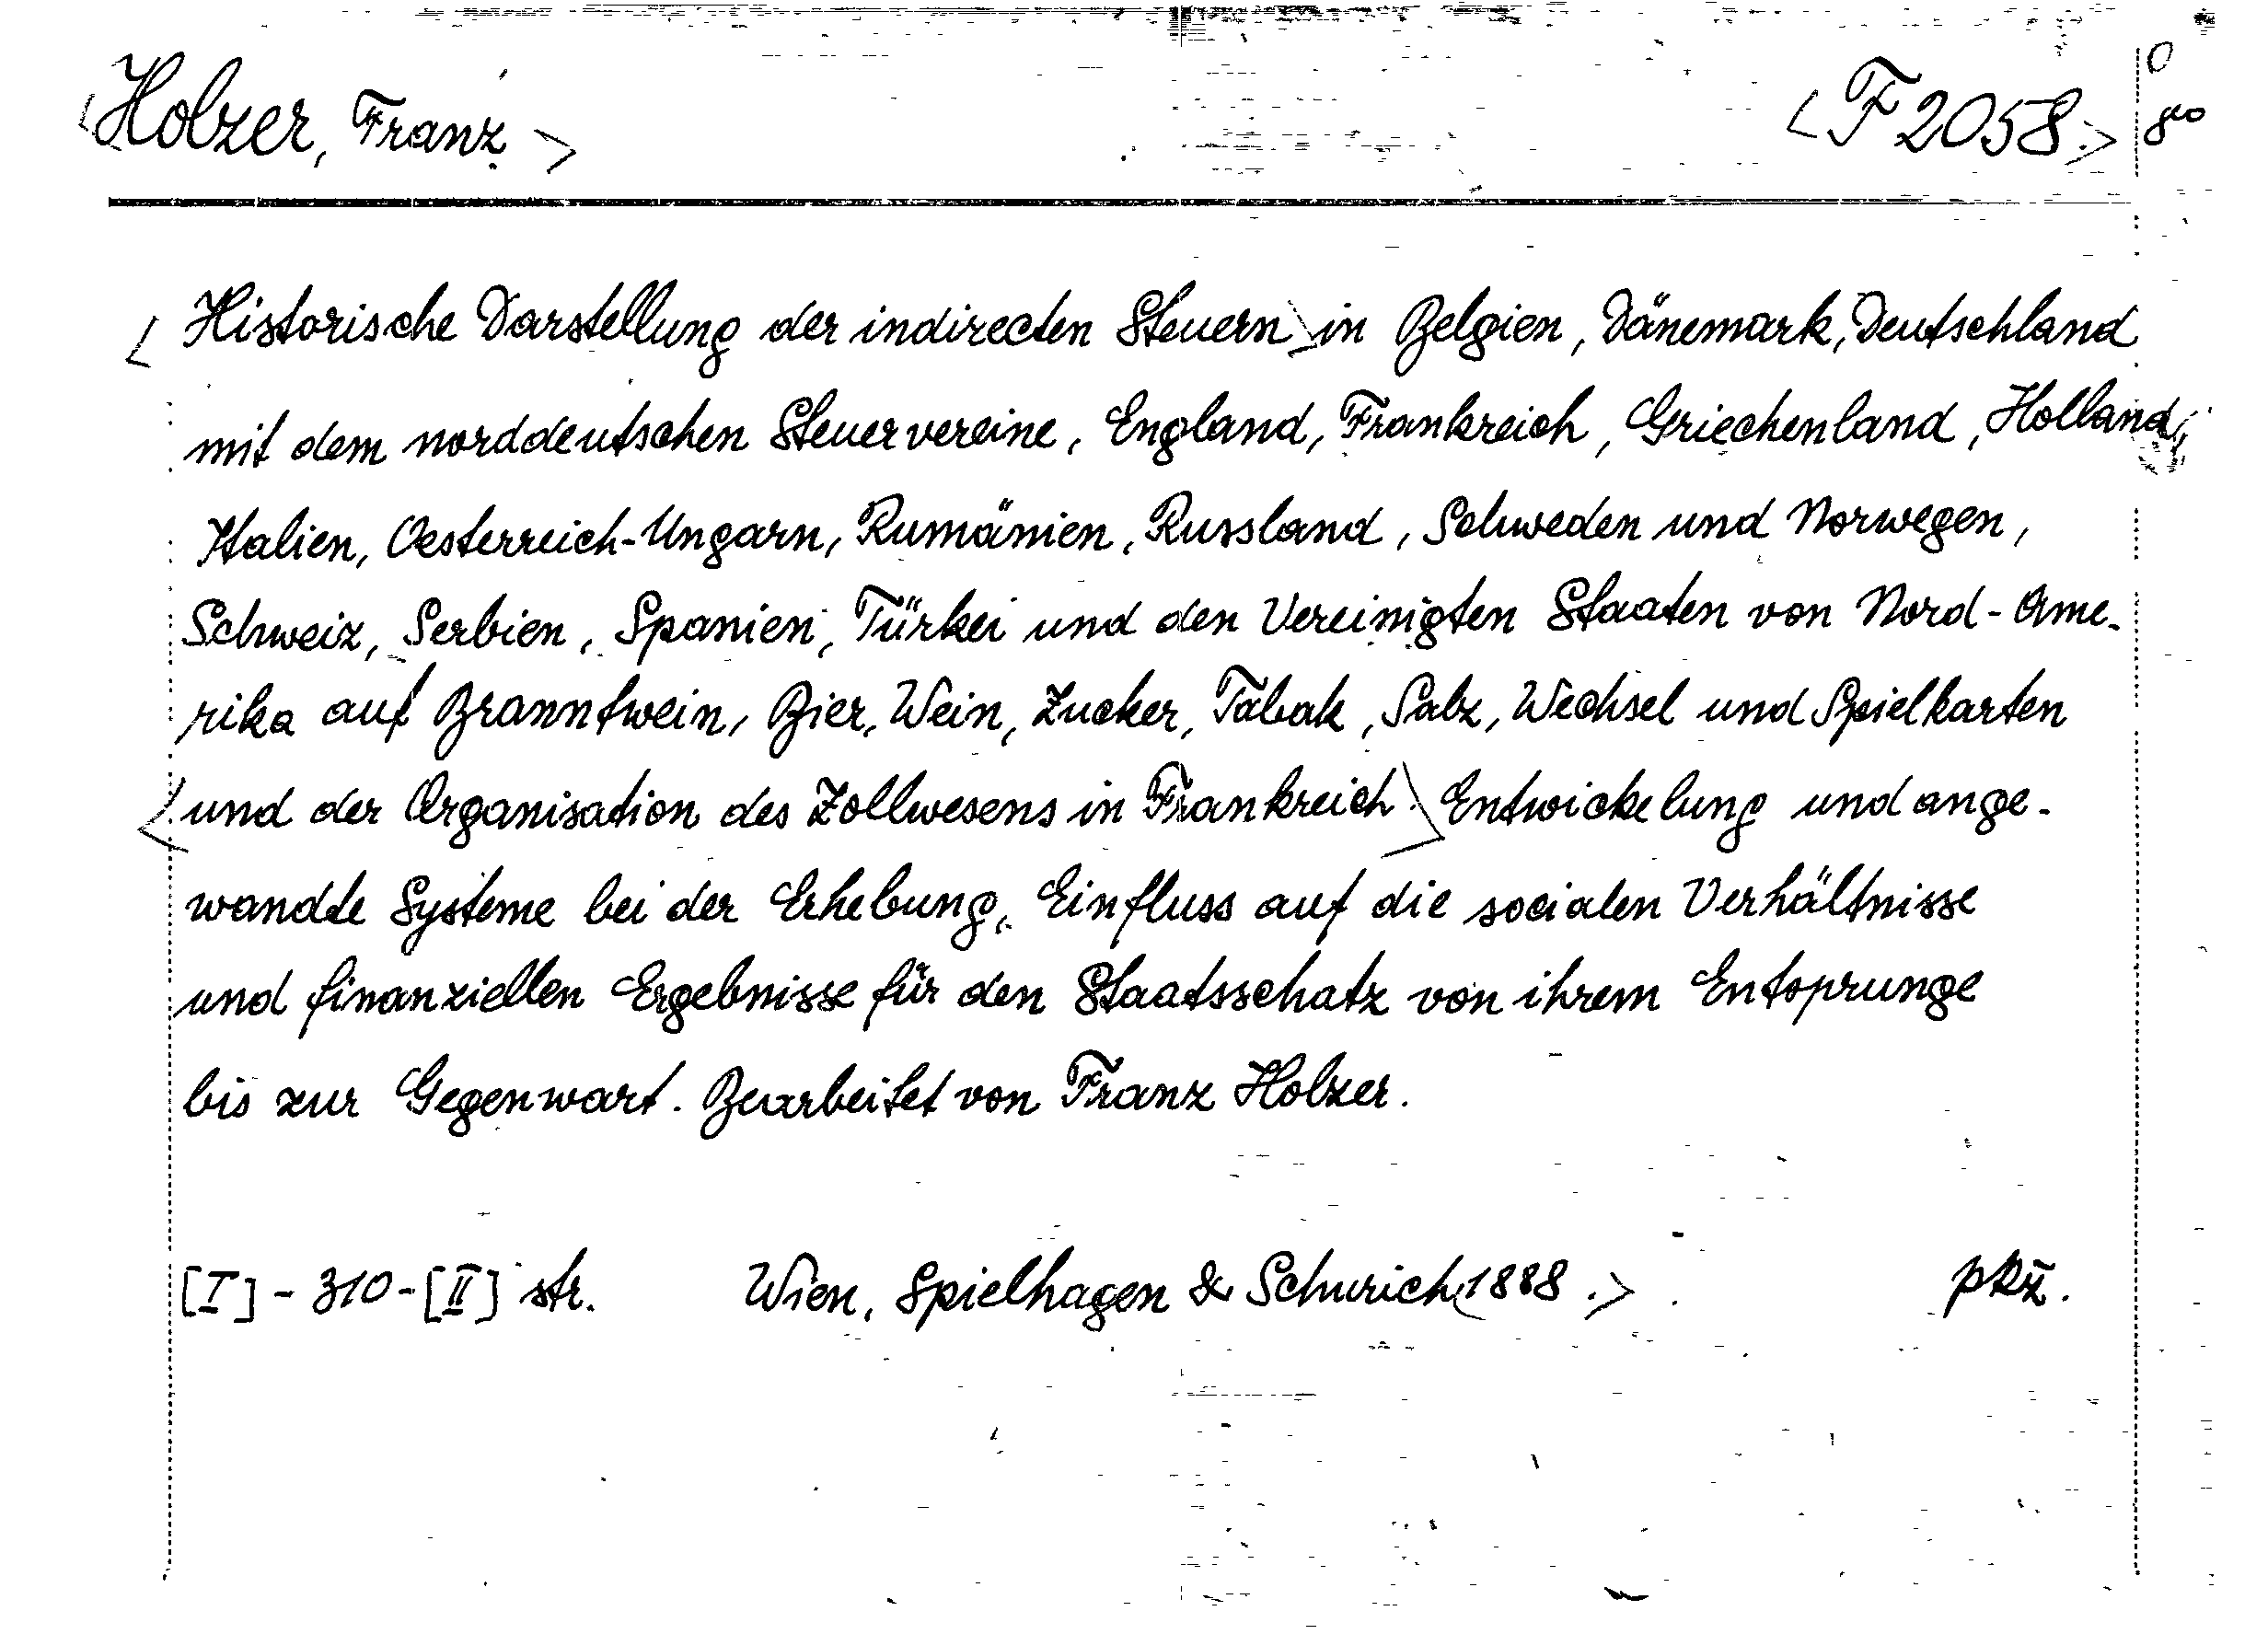 <Holzer, Franz> <F 2058.> 8vo
<Historische Darstellung der indirecten Steuern> in Belgien, Dänemark, Deutschland
mit dem norddeutschen Steuervereine, England, Frankreich, Griechenland, Holland,
Italien, Oesterreich-Ungarn, Rumänien, Russland, Schweden und Norwegen,
Schweiz, Serbien, Spanien, Türkei und den Vereinigten Staaten von Nord-Ame-
rika auf Branntwein, Bier, Wein, Zucker, Tabak, Salz, Wechsel und Spielkarten
<und der Organisation des Zollwesens in Frankreich.> Entwickelung und ange-
wandte Systeme bei der Erhebung, Einfluss auf die socialen Verhältnisse
und finanziellen Ergebnisse für den Staatsschatz von ihrem Entsprunge
bis zur Gegenwart. Bearbeitet von Franz Holzer.
[I] - 310 - [II] str. Wien, Spielhagen & Schurich <1888.> pkž.